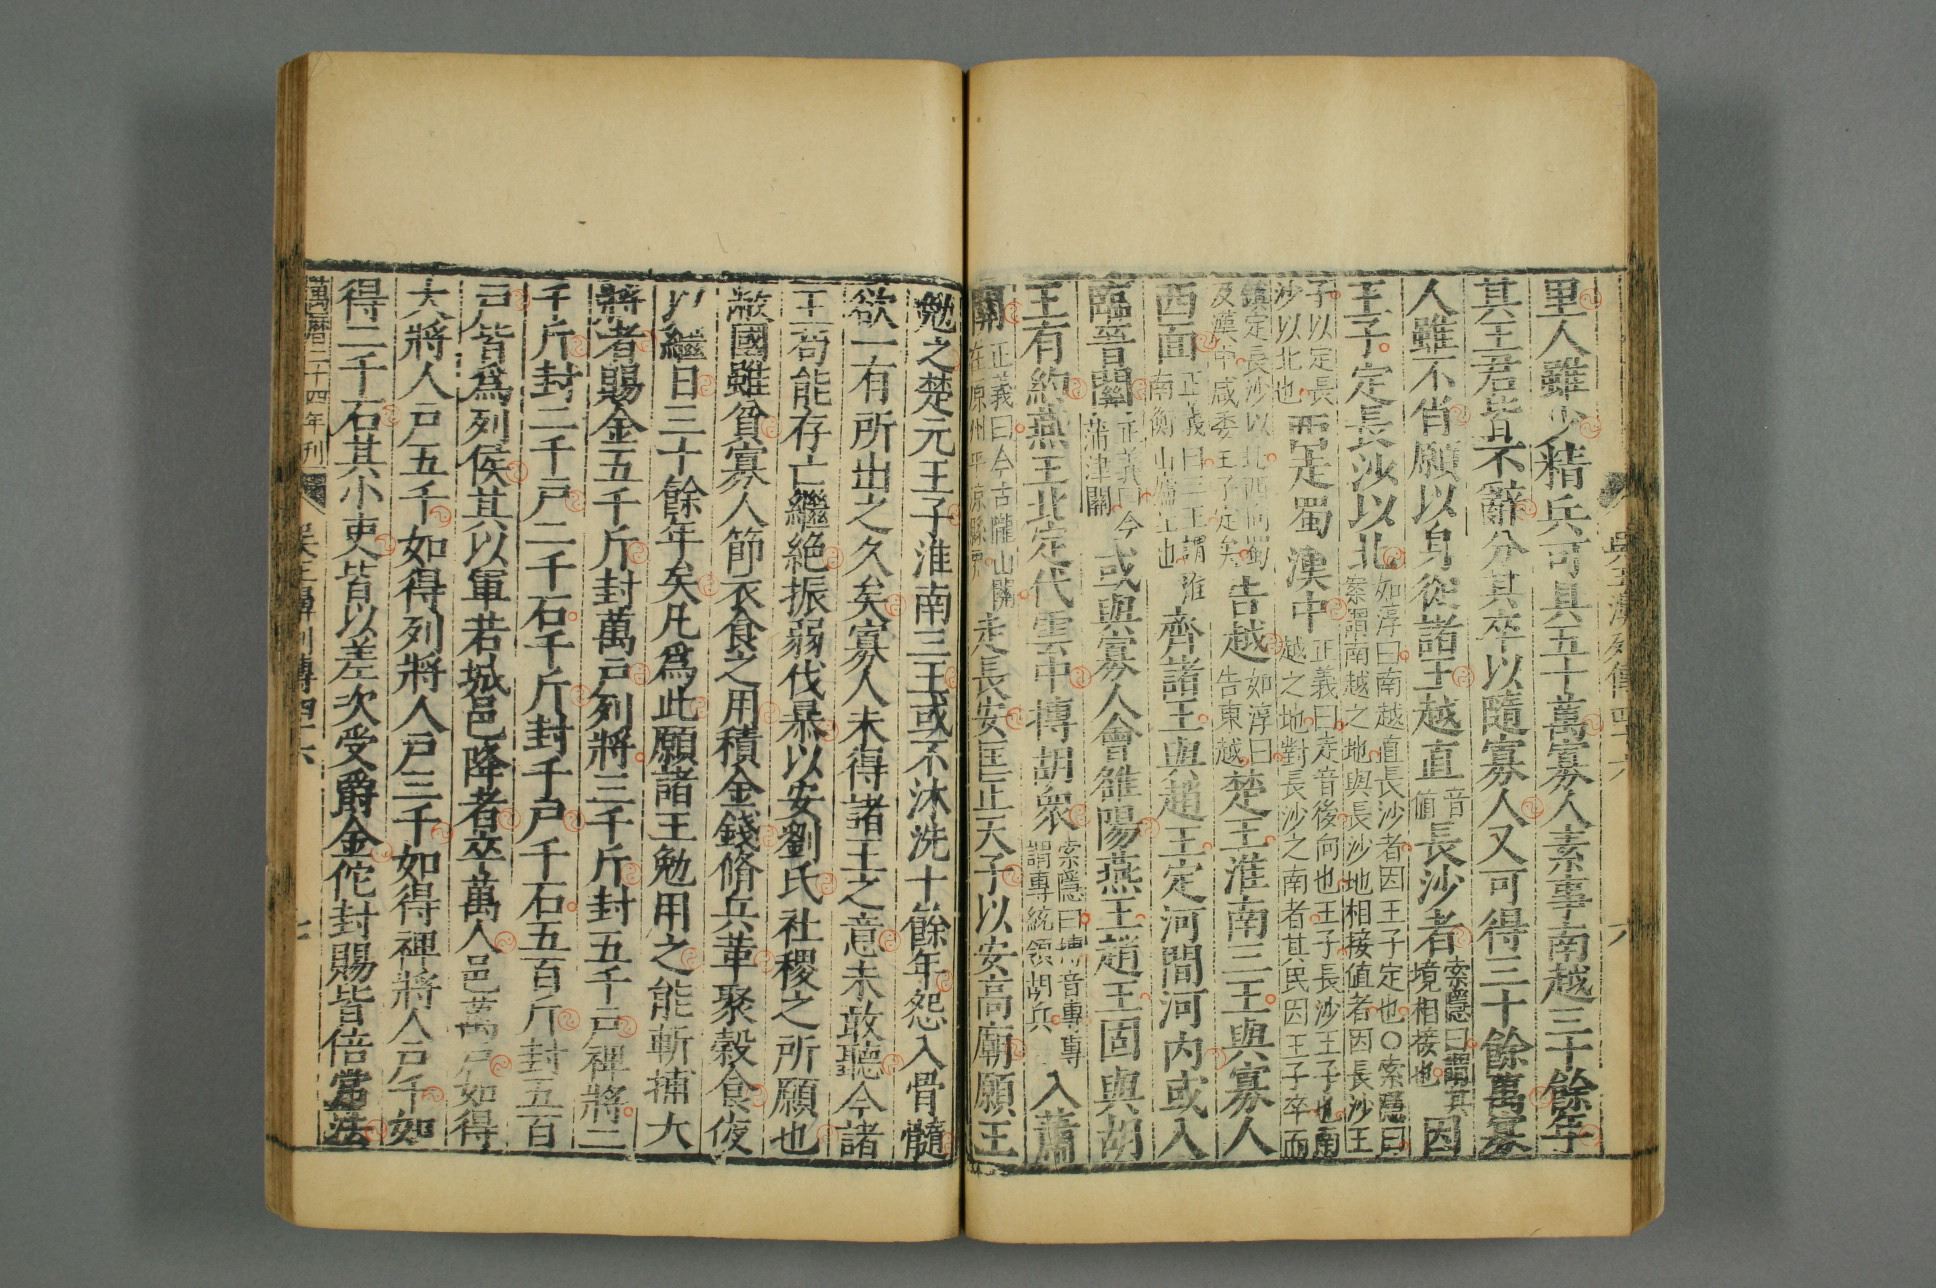 里人雖少精兵可具五十萬寡人素事南越三十餘年
其王君皆不辭分其卒以隨寡人又可得三十餘萬寡
人雖不肖願以身從諸王越直音值長沙者索隱曰謂其境相接也因
王子定長沙以北如淳曰南越直長沙者因王子定也○索隱曰案謂南越之地與長沙地相接值者因長沙王
子以定長沙以北也西走蜀漢中正義曰走音後向也王子長沙王子也南越之地對長沙之南者其民因王子卒而
鎮定長沙以北西向蜀及漢中咸委王子定矣告越如淳曰告東越楚王淮南三王與寡人
西面正義曰三王謂淮南衡山廬江也齊諸王與趙王定河間河內或入
臨晉關正義曰今蒲津關或與寡人會雒陽燕王趙王固與胡
王有約燕王北定代雲中摶胡衆索隱曰摶音專專謂專統領胡兵入蕭
關正義曰今古隴山關在原州平涼縣界走長安匡正天子以安高廟願王
勉之楚元王子淮南三王或不沐洗十餘年怨入骨髓
欲一有所出之久矣寡人未得諸王之意未敢聽今諸
王苟能存亡繼絕振弱伐暴以安劉氏社稷之所願也
敝國雖貧寡人節衣食之用積金錢脩兵革聚穀食夜
以繼日三十餘年矣凡爲此願諸王勉用之能斬捕大
將者賜金五千斤封萬戶列將三千斤封五千戶裨將二
千斤封二千戶二千石千斤封千戶千石五百斤封五百
戶皆爲列侯其以軍若城邑降者卒萬人邑萬戶如得
大將人戶五千如得列將人戶三千如得裨將人戶千如
得二千石其小吏皆以差次受爵金佗封賜皆倍常法
萬曆二十四年刊
吳王濞列傳四十六
六
七